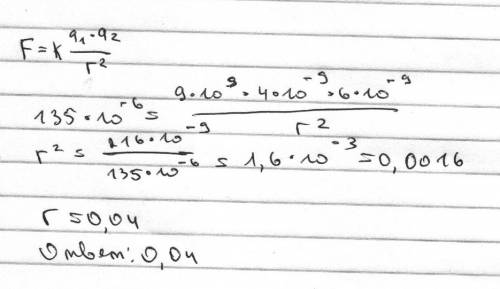 F = k q₁·q₂ / r²
135·10⁻⁶ = 9·10⁹·4·10⁻⁹·6·10⁻⁹ / r²
r² = 216·10⁻⁹ / 135·10⁻⁶ = 1,6·10⁻³ = 0,0016
r = 0,04
Ответ: 0,04